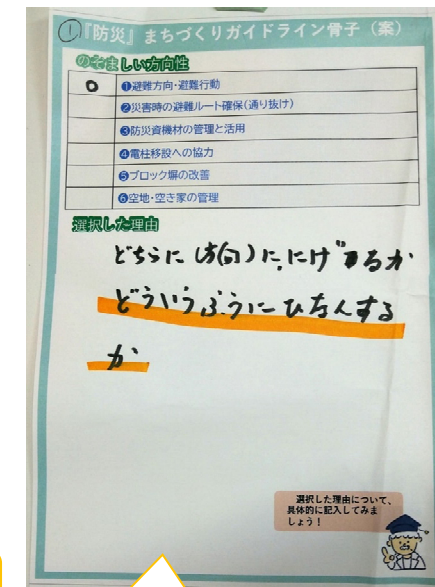 ①『防災』まちづくりガイドライン骨子（案）
のぞましい方向性
○ ❶避難方向・避難行動
❷災害時の避難ルート確保（通り抜け）
❸防災資機材の管理と活用
❹電柱移設への協力
❺ブロック塀の改善
❻空地・空き家の管理
選択した理由
どちらに（方向）に、にげるか
どういうふうにひなんする
か
選択した理由について、
具体的に記入してみま
しょう！